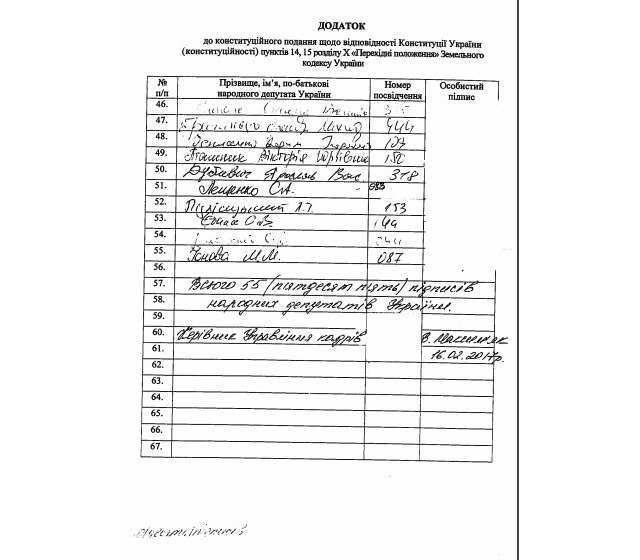 ДОДАТОК
до конституційного подання щодо відповідності Конституції України
(конституційності) пунктів 14, 15 розділу X «Перехідні положення» Земельного
кодексу України
№ п/п Прізвище, ім’я, по-батькові народного депутата України Номер посвідчення Особистий підпис
46.
47. 444
48. 107
49. Пташник Вікторія Юріївна 150
50. Дубневич Ярослав Вас 378
51. Лещенко С.А. 083
52. 153
53. 149
54. 344
55. Іонова М.М. 087
56.
57. Всього 55 (п'ятдесят п'ять) підписів
58. народних депутатів України.
59.
60. Керівник Управління кадрів В.
61. 16.02.2017р.
62.
63.
64.
65.
66.
67.